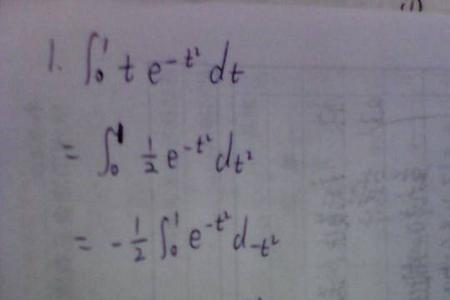 1. ∫₀¹ t e^{-t²} dt
= ∫₀¹ ½ e^{-t²} dt²
= -½ ∫₀¹ e^{-t²} d-t²